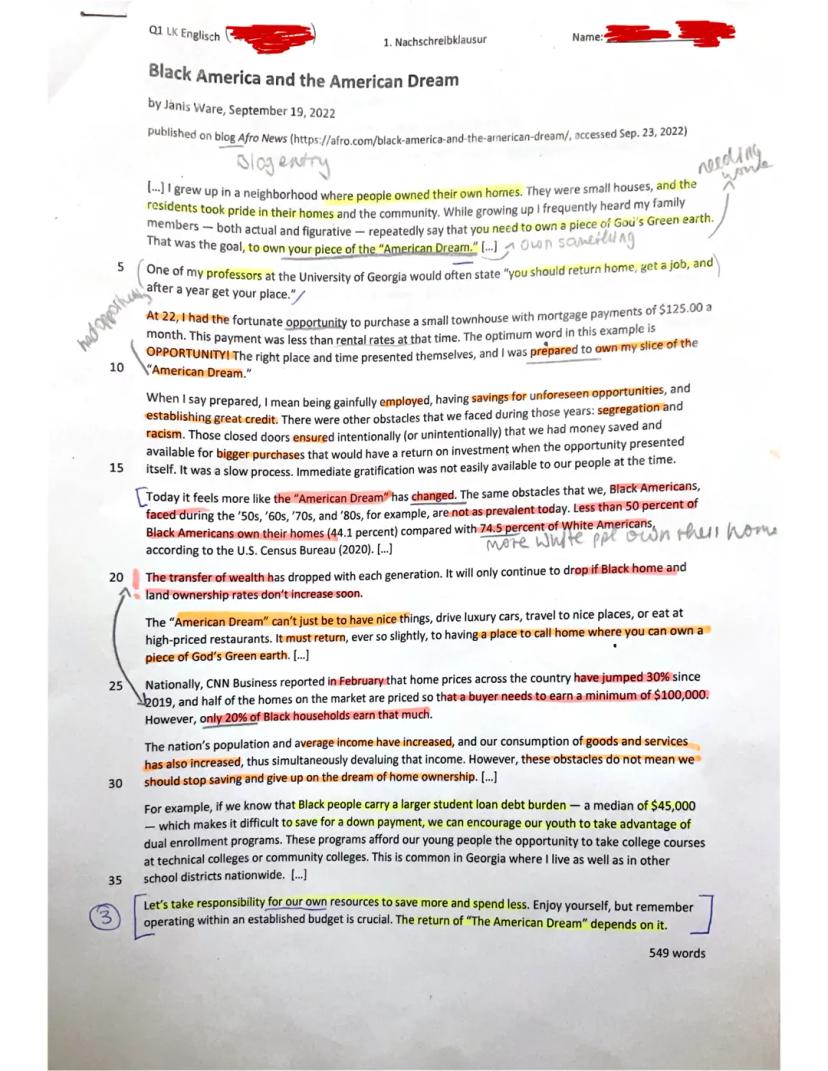 Q1 LK Englisch (
1. Nachschreibklausur
Name:
Black America and the American Dream
by Janis Ware, September 19, 2022
published on blog Afro News (https://afro.com/black-america-and-the-american-dream/, accessed Sep. 23, 2022)
Blog entry
needing
[...] I grew up in a neighborhood where people owned their own homes. They were small houses, and the
residents took pride in their homes and the community. While growing up I frequently heard my family
members — both actual and figurative — repeatedly say that you need to own a piece of God's Green earth.
That was the goal, to own your piece of the "American Dream." [...]
own something
5 One of my professors at the University of Georgia would often state "you should return home, get a job, and
after a year get your place."
had
At 22, I had the fortunate opportunity to purchase a small townhouse with mortgage payments of $125.00 a
month. This payment was less than rental rates at that time. The optimum word in this example is
OPPORTUNITY! The right place and time presented themselves, and I was prepared to own my slice of the
10 "American Dream."
When I say prepared, I mean being gainfully employed, having savings for unforeseen opportunities, and
establishing great credit. There were other obstacles that we faced during those years: segregation and
racism. Those closed doors ensured intentionally (or unintentionally) that we had money saved and
available for bigger purchases that would have a return on investment when the opportunity presented
15 itself. It was a slow process. Immediate gratification was not easily available to our people at the time.
Today it feels more like the "American Dream" has changed. The same obstacles that we, Black Americans,
faced during the '50s, '60s, '70s, and '80s, for example, are not as prevalent today. Less than 50 percent of
Black Americans own their homes (44.1 percent) compared with 74.5 percent of White Americans,
according to the U.S. Census Bureau (2020). [...]
more white ppl own their home
20 The transfer of wealth has dropped with each generation. It will only continue to drop if Black home and
land ownership rates don't increase soon.
The "American Dream" can't just be to have nice things, drive luxury cars, travel to nice places, or eat at
high-priced restaurants. It must return, ever so slightly, to having a place to call home where you can own a
piece of God's Green earth. [...]
25 Nationally, CNN Business reported in February that home prices across the country have jumped 30% since
2019, and half of the homes on the market are priced so that a buyer needs to earn a minimum of $100,000.
However, only 20% of Black households earn that much.
The nation's population and average income have increased, and our consumption of goods and services
has also increased, thus simultaneously devaluing that income. However, these obstacles do not mean we
30 should stop saving and give up on the dream of home ownership. [...]
For example, if we know that Black people carry a larger student loan debt burden — a median of $45,000
— which makes it difficult to save for a down payment, we can encourage our youth to take advantage of
dual enrollment programs. These programs afford our young people the opportunity to take college courses
at technical colleges or community colleges. This is common in Georgia where I live as well as in other
35 school districts nationwide. [...]
3 Let's take responsibility for our own resources to save more and spend less. Enjoy yourself, but remember
operating within an established budget is crucial. The return of "The American Dream" depends on it.
549 words